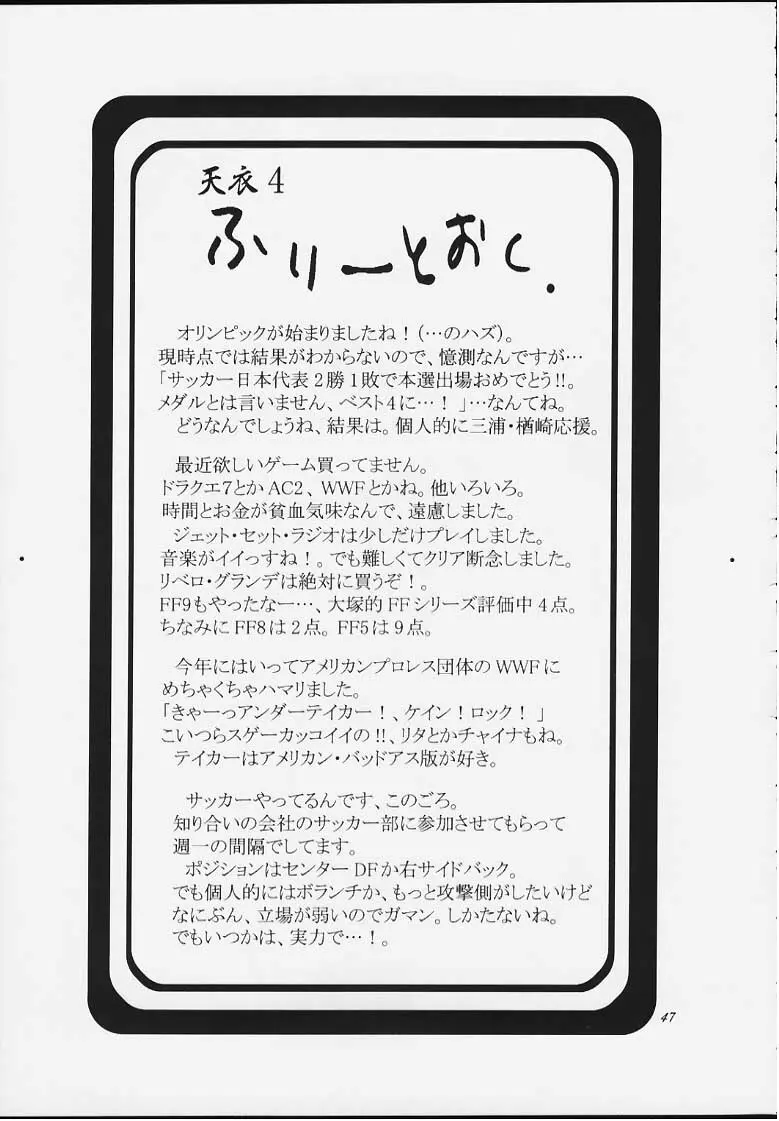 天衣4
ふりーとおく.
オリンピックが始まりましたね！(…のハズ)。
現時点では結果がわからないので、憶測なんですが…
「サッカー日本代表２勝１敗で本選出場おめでとう!!。
メダルとは言いません、ベスト４に…！」…なんてね。
どうなんでしょうね、結果は。個人的に三浦・楢崎応援。
最近欲しいゲーム買ってません。
ドラクエ7とかAC2、WWFとかね。他いろいろ。
時間とお金が貧血気味なんで、遠慮しました。
ジェット・セット・ラジオは少しだけプレイしました。
音楽がイイっすね！。でも難しくてクリア断念しました。
リベロ・グランデは絶対に買うぞ！。
FF9もやったなー…、大塚的FFシリーズ評価中４点。
ちなみにFF8は２点。FF5は９点。
今年にはいってアメリカンプロレス団体のWWFに
めちゃくちゃハマリました。
「きゃーっアンダーテイカー！、ケイン！ロック！」
こいつらスゲーカッコイイの!!、リタとかチャイナもね。
テイカーはアメリカン・バッドアス版が好き。
サッカーやってるんです、このごろ。
知り合いの会社のサッカー部に参加させてもらって
週一の間隔でしてます。
ポジションはセンターDFか右サイドバック。
でも個人的にはボランチか、もっと攻撃側がしたいけど
なにぶん、立場が弱いのでガマン。しかたないね。
でもいつかは、実力で…！。
47